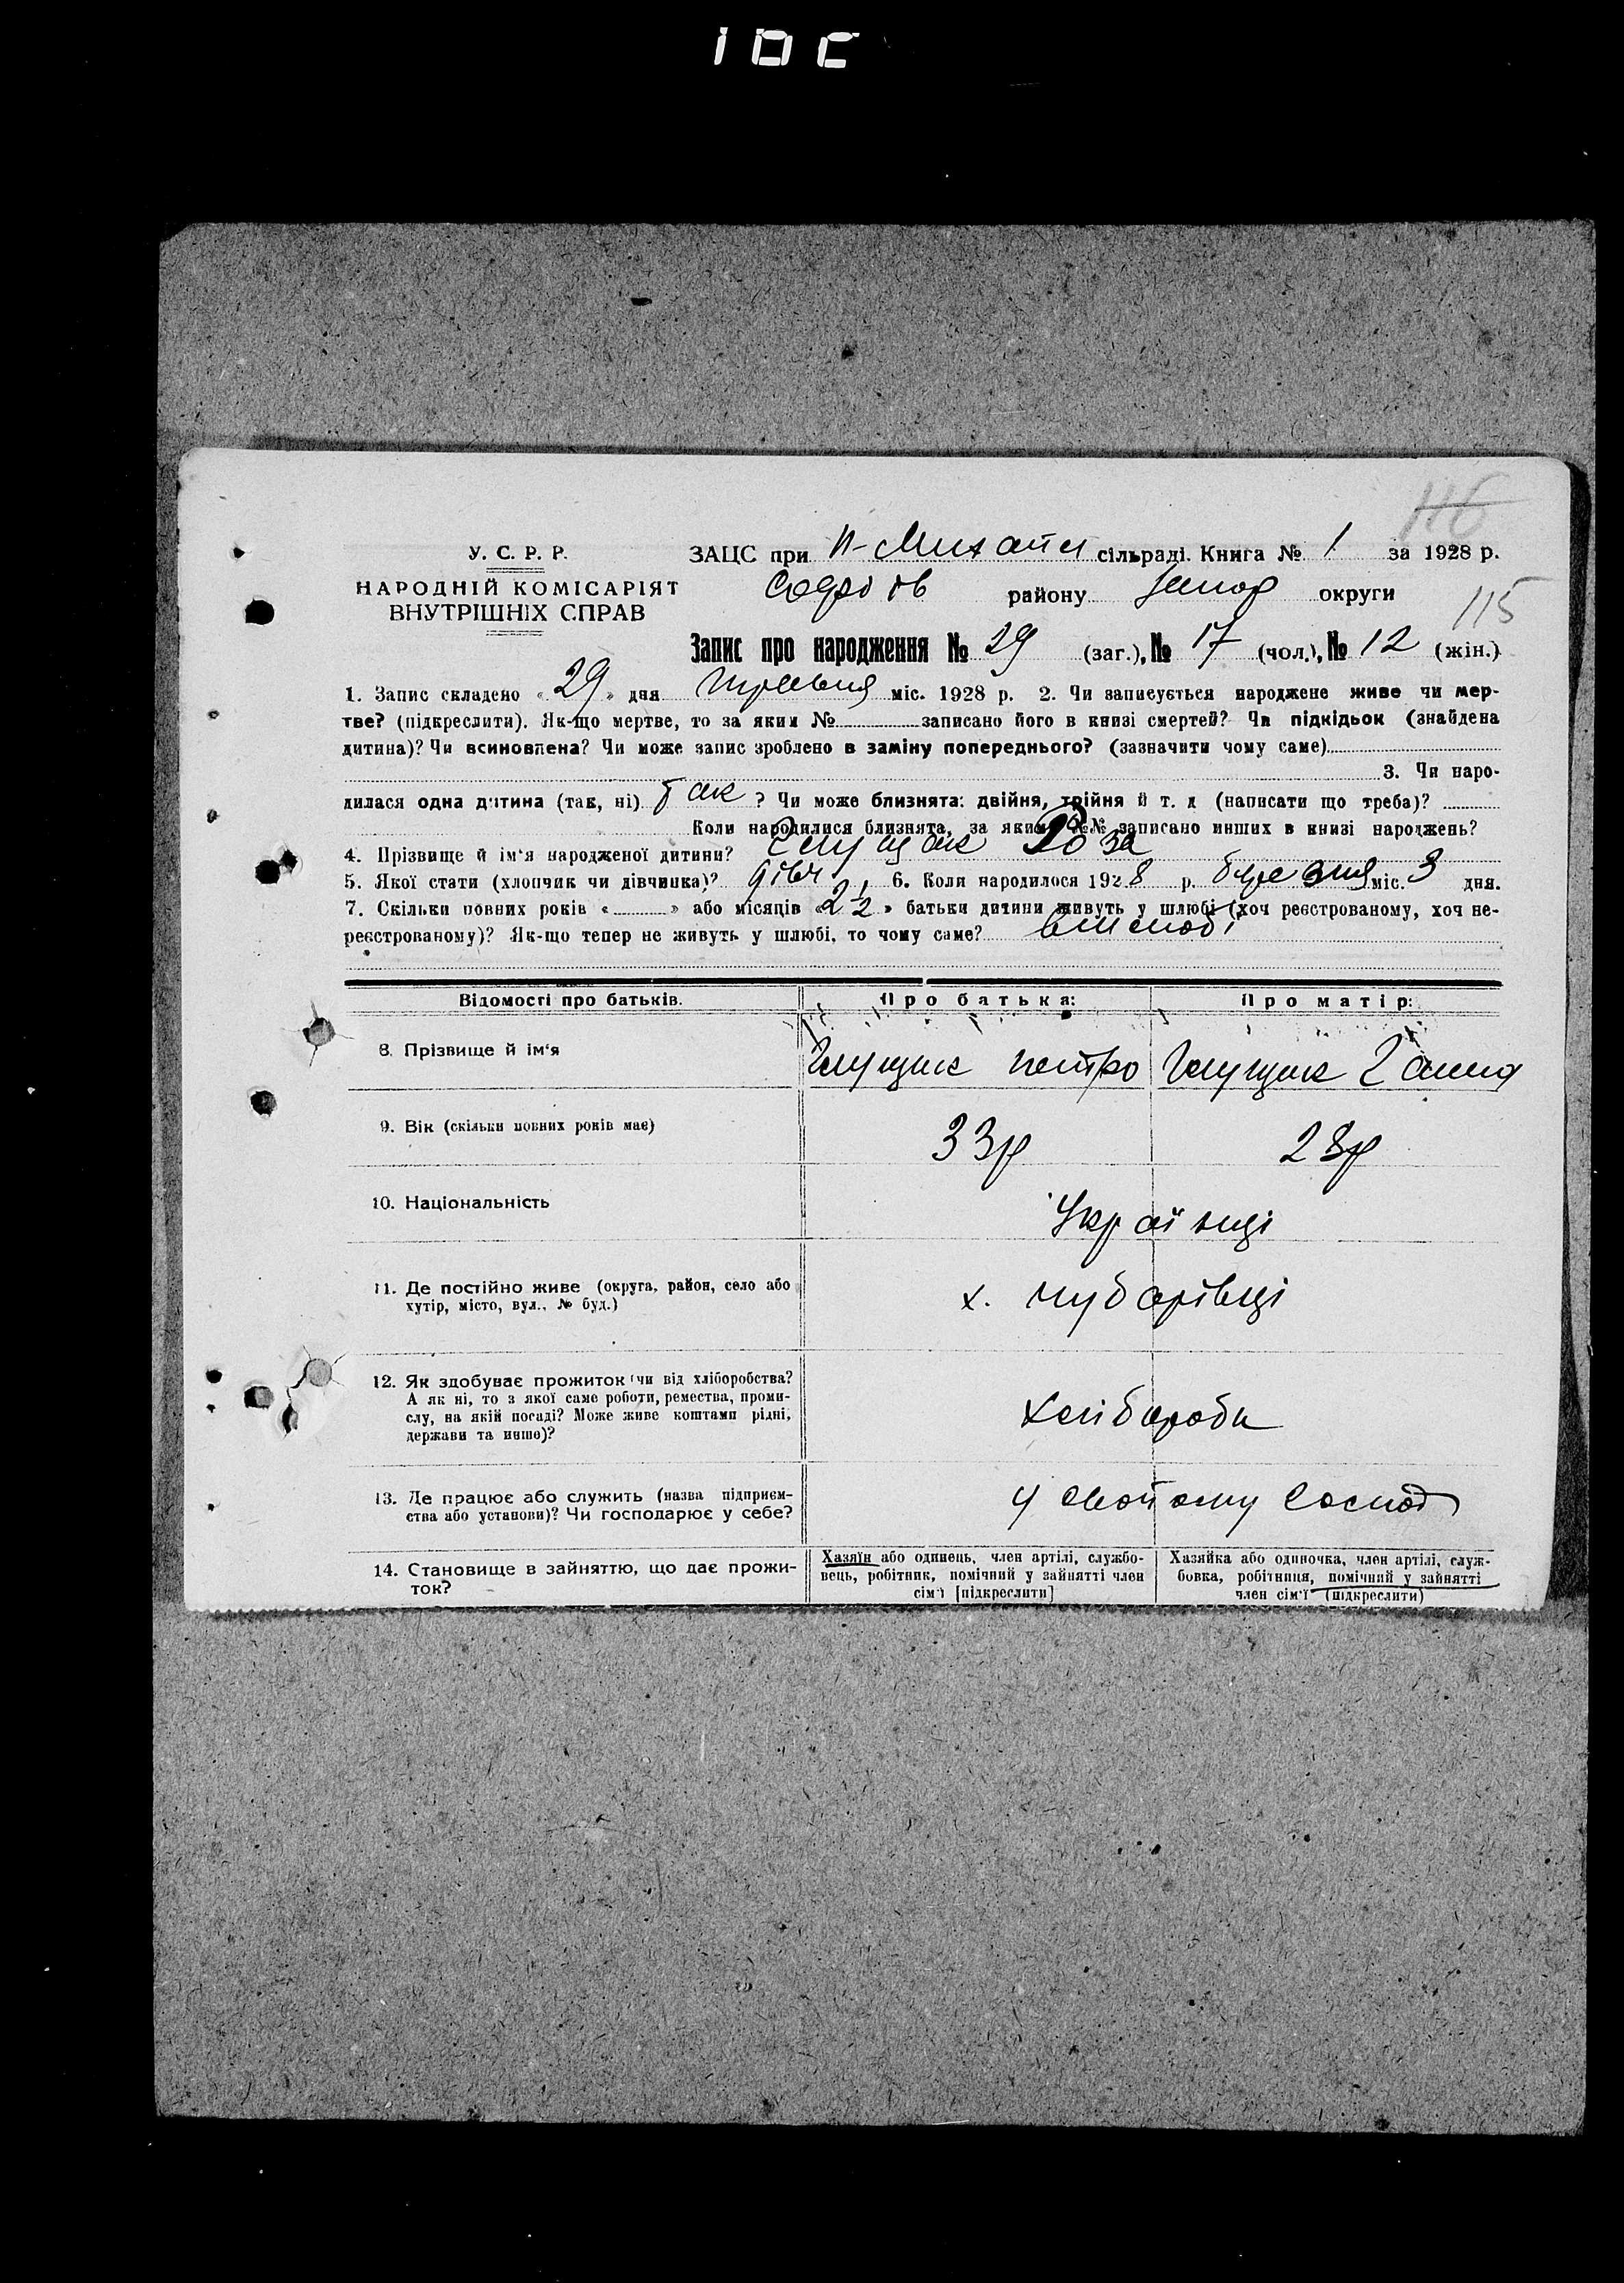 У. С. Р. Р.
НАРОДНІЙ КОМІСАРІЯТ
ВНУТРІШНІХ СПРАВ
ЗАЦС при Н-Михайл сільраді. Книга № 1 за 1928 р.
району Запор округи
115
Запис про народження № 29 (заг.), № 17 (чол.), № 12 (жін.)
1. Запис складено «29» дня травня міс. 1928 р. 2. Чи записується народжене живе чи мер-
тве? (підкреслити). Як-що мертве, то за яким № записано його в книзі смертей? Чи підкідьок (знайдена
дитина)? Чи всиновлена? Чи може запис зроблено в заміну попереднього? (зазначити чому саме)
3. Чи наро-
дилася одна дитина (так, ні) так ? Чи може близнята: двійня, трійня й т. д (написати що треба)?
Коли народилися близнята, за яким №№ записано инших в книзі народжень?
4. Прізвище й ім'я народженої дитини? Глущак Роза
5. Якої стати (хлопчик чи дівчинка)? дівч 6. Коли народилося 1928 р. березня міс. 3 дня.
7. Скільки повних років « » або місяців «2 1/2» батьки дитини живуть у шлюбі (хоч реєстрованому, хоч не-
реєстрованому)? Як-що тепер не живуть у шлюбі, то чому саме? в шлюбі
Відомості про батьків.
Про батька:
Про матір:
8. Прізвище й ім'я
Глущак Петро
Глущак Ганна
9. Вік (скільки повних років має)
33р
28р
10. Національність
Українці
11. Де постійно живе (округа, район, село або
хутір, місто, вул., № буд.)
х. Чубарівці
12. Як здобуває прожиток (чи від хліборобства?
А як ні, то з якої саме роботи, ремества, проми-
слу, на якій посаді? Може живе коштами рідні,
держави та инше)?
Хлібороби
13. Де працює або служить (назва підприєм-
ства або установи)? Чи господарює у себе?
У своїому Господ
14. Становище в зайняттю, що дає прожи-
ток?
Хазяїн або одинець, член артілі, службо-
вець, робітник, помічний у зайнятті член
сім'ї [підкреслити]
Хазяйка або одиночка, член артілі, служ-
бовка, робітниця, помічний у зайнятті
член сім'ї (підкреслити)